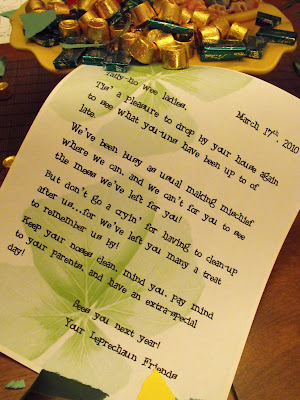 March 17th, 2010
Tally-ho Wee ladies,
Tis' a Pleasure to drop by your house again
to see what you-uns have been up to of
late.
We've been busy as usual making mischief
where we can, and we can't for you to see
the mess we've left for you!
But don't go a cryin' for having to clean-up
after us...for we've left you many a treat
to remember us by!
Keep your noses clean, mind you, Pay mind
to your parents, and have an extra-special
day!
See you next year!
Your Leprechaun Friends